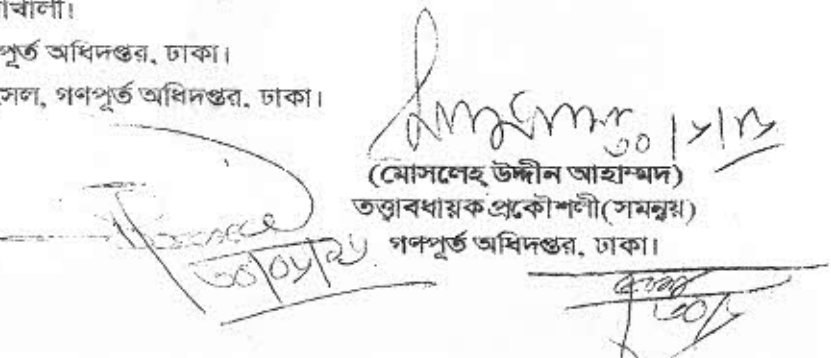 খালী।
পূর্ত অধিদপ্তর, ঢাকা।
সেল, গণপূর্ত অধিদপ্তর, ঢাকা।
(মোসলেহ্ উদ্দীন আহাম্মদ)
তত্ত্বাবধায়ক প্রকৌশলী(সমন্বয়)
গণপূর্ত অধিদপ্তর, ঢাকা।